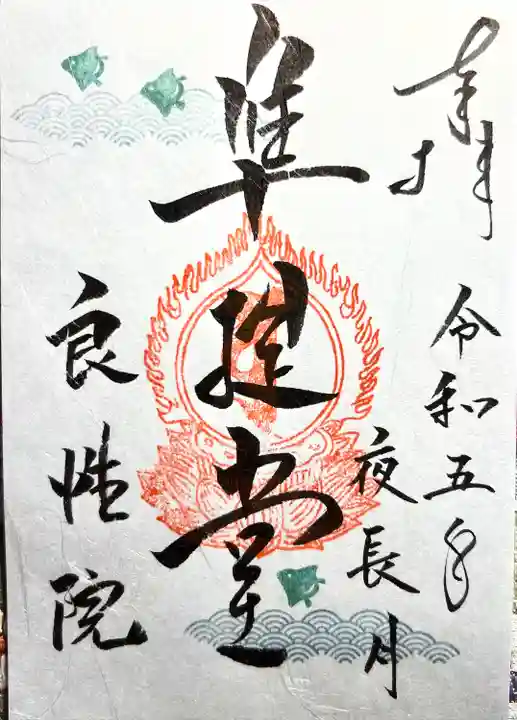 奉拝
令和五年
夜長月
准提堂
良性院